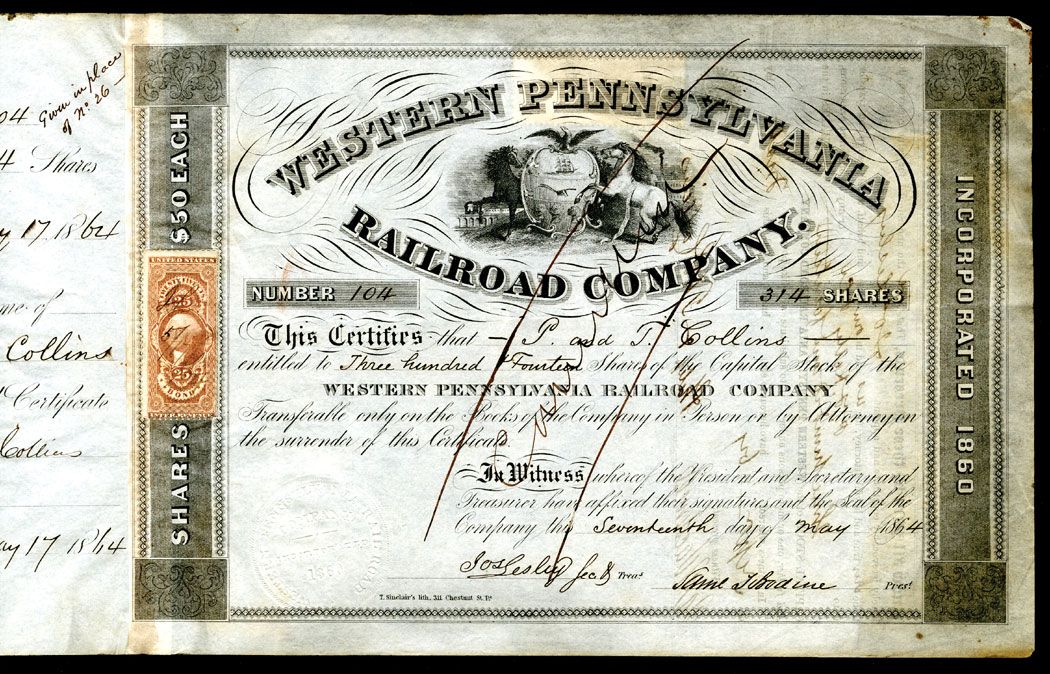 Given in place
of No. 26
04
4 Shares
17 1864
of
Collins
Certificate
Collins
ay 17 1864
$50 EACH
UNITED STATES
25
25
BOND
SHARES
WESTERN PENNSYLVANIA
RAILROAD COMPANY.
NUMBER 104
314 SHARES
This Certifies that P. and T. Collins
entitled to Three hundred & Fourteen Shares of the Capital Stock of the
WESTERN PENNSYLVANIA RAILROAD COMPANY
Transferable only on the Books of the Company in Person or by Attorney on
the surrender of this Certificate
In Witness whereof the President and Secretary and
Treasurer have affixed their signatures and the Seal of the
Company this Seventeenth day of May 1864
Jos Lesley Sec & Treas.
Saml T Bodine Prest.
T. Sinclair's lith, 311 Chestnut St. Pa
INCORPORATED 1860